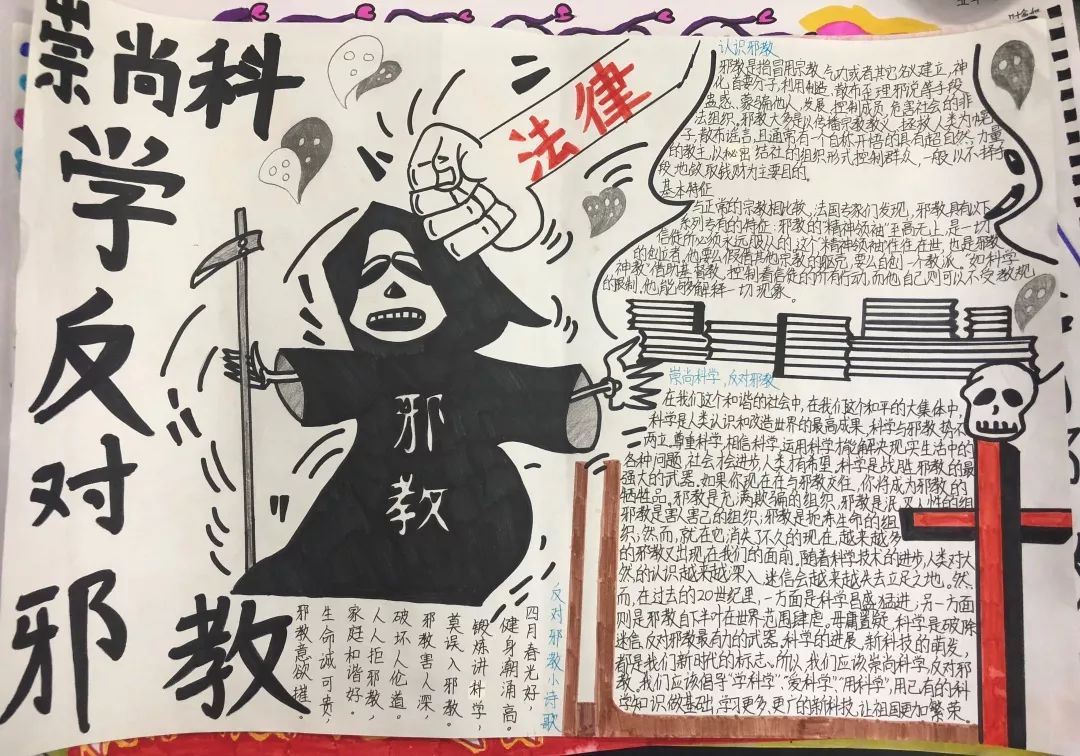 崇尚科
学
反
对
邪
教
法律
邪
教
认识邪教
邪教是指冒用宗教、气功或者其它名义建立,神
化首要分子,利用制造、散布歪理邪说等手段
蛊惑、蒙骗他人,发展、控制成员,危害社会的非
法组织。邪教大多是以传播宗教教义、拯救人类为幌
子,散布谣言,且通常有一个自称开悟的具有超自然力量
的教主,以秘密结社的组织形式控制群众,一般以不择手
段地敛取钱财为主要目的。
基本特征
与正常的宗教相比较,法国专家们发现,邪教具有以下
系列专有的特征:邪教的"精神领袖"至高无上,是一切
信徒所必须永远服从的,这个"精神领袖"往往在世,也是邪教
的创立者,他要么假借其他宗教的贩壳,要么自创一个教派。如科学
神教借助基督教、控制着信徒的所有行动,而他自己则可以不受教规
的限制,他能够解释一切现象。
崇尚科学,反对邪教
在我们这个和谐的社会中,在我们这个和平的大集体中,
科学是人类认识和改造世界的最高成果,科学与邪教势不
两立,尊重科学,相信科学,运用科学才能解决现实生活中的
各种问题,社会才会进步,人类才有希望,科学是战胜邪教的最
强大的武器。如果你现在在与邪教交往,你将成为邪教的
牺牲品。邪教是充满欺骗的组织,邪教是泯灭人性的组
邪教是害人害己的组织;邪教是扼杀生命的组
织;然而,就在它消失了不久的现在,越来越多
的邪教又出现在我们的面前。随着科学技术的进步,人类对大
然的认识越来越深入,迷信会越来越失去立足之地。然
而,在过去的20世纪里,一方面是科学昌盛猛进;另一方面
则是邪教自下半叶在世界范围肆虐。毋庸置疑,科学是破除
迷信,反对邪教最有力的武器。科学的进展,新科技的萌发,
都是我们新时代的标志。所以,我们应该崇尚科学,反对邪
教,我们应该倡导"学科学""爱科学""用科学",用已有的科
学知识做基础,学习更多、更广的新科技,让祖国更加繁荣。
反对邪教小诗歌
四月春光好,
健身潮涌高。
锻炼讲科学,
莫误入邪教。
邪教害人深,
破坏人伦道。
人人拒邪教,
家庭和谐好。
生命诚可贵,
邪教意欲摧。